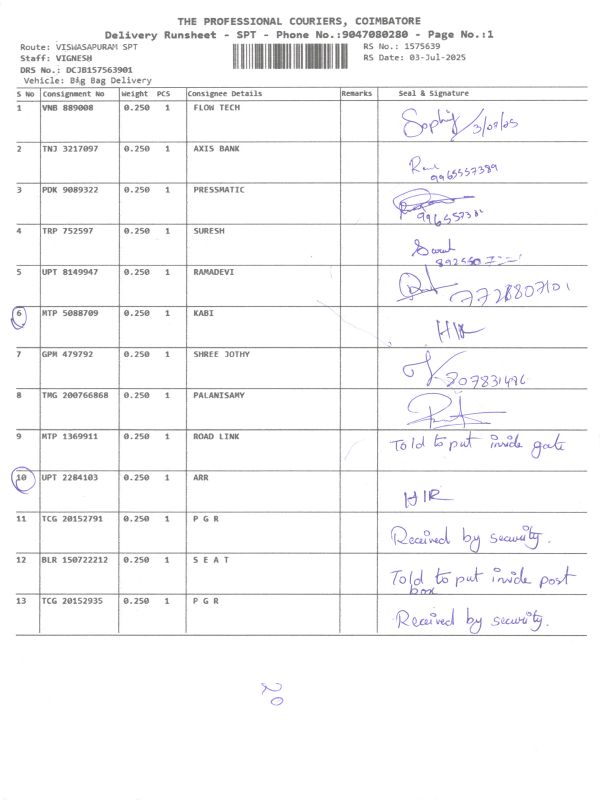 THE PROFESSIONAL COURIERS, COIMBATORE
Delivery Runsheet - SPT - Phone No.:9047080280 - Page No.:1
Route: VISWASAPURAM SPT
RS No.: 1575639
Staff: VIGNESH
RS Date: 03-Jul-2025
DRS No.: DCJB157563901
Vehicle: Big Bag Delivery
S No Consignment No Weight PCS Consignee Details Remarks Seal & Signature
1 VNB 889008 0.250 1 FLOW TECH
2 TNJ 3217097 0.250 1 AXIS BANK
9965557389
3 PDK 9089322 0.250 1 PRESSMATIC
4 TRP 752597 0.250 1 SURESH
5 UPT 8149947 0.250 1 RAMADEVI
6 MTP 5088709 0.250 1 KABI
7 GPM 479792 0.250 1 SHREE JOTHY
8 TMG 200766868 0.250 1 PALANISAMY
9 MTP 1369911 0.250 1 ROAD LINK Told to put inside gate
10 UPT 2284103 0.250 1 ARR
11 TCG 20152791 0.250 1 P G R Received by security.
12 BLR 150722212 0.250 1 S E A T Told to put inside post
box
13 TCG 20152935 0.250 1 P G R Received by security.